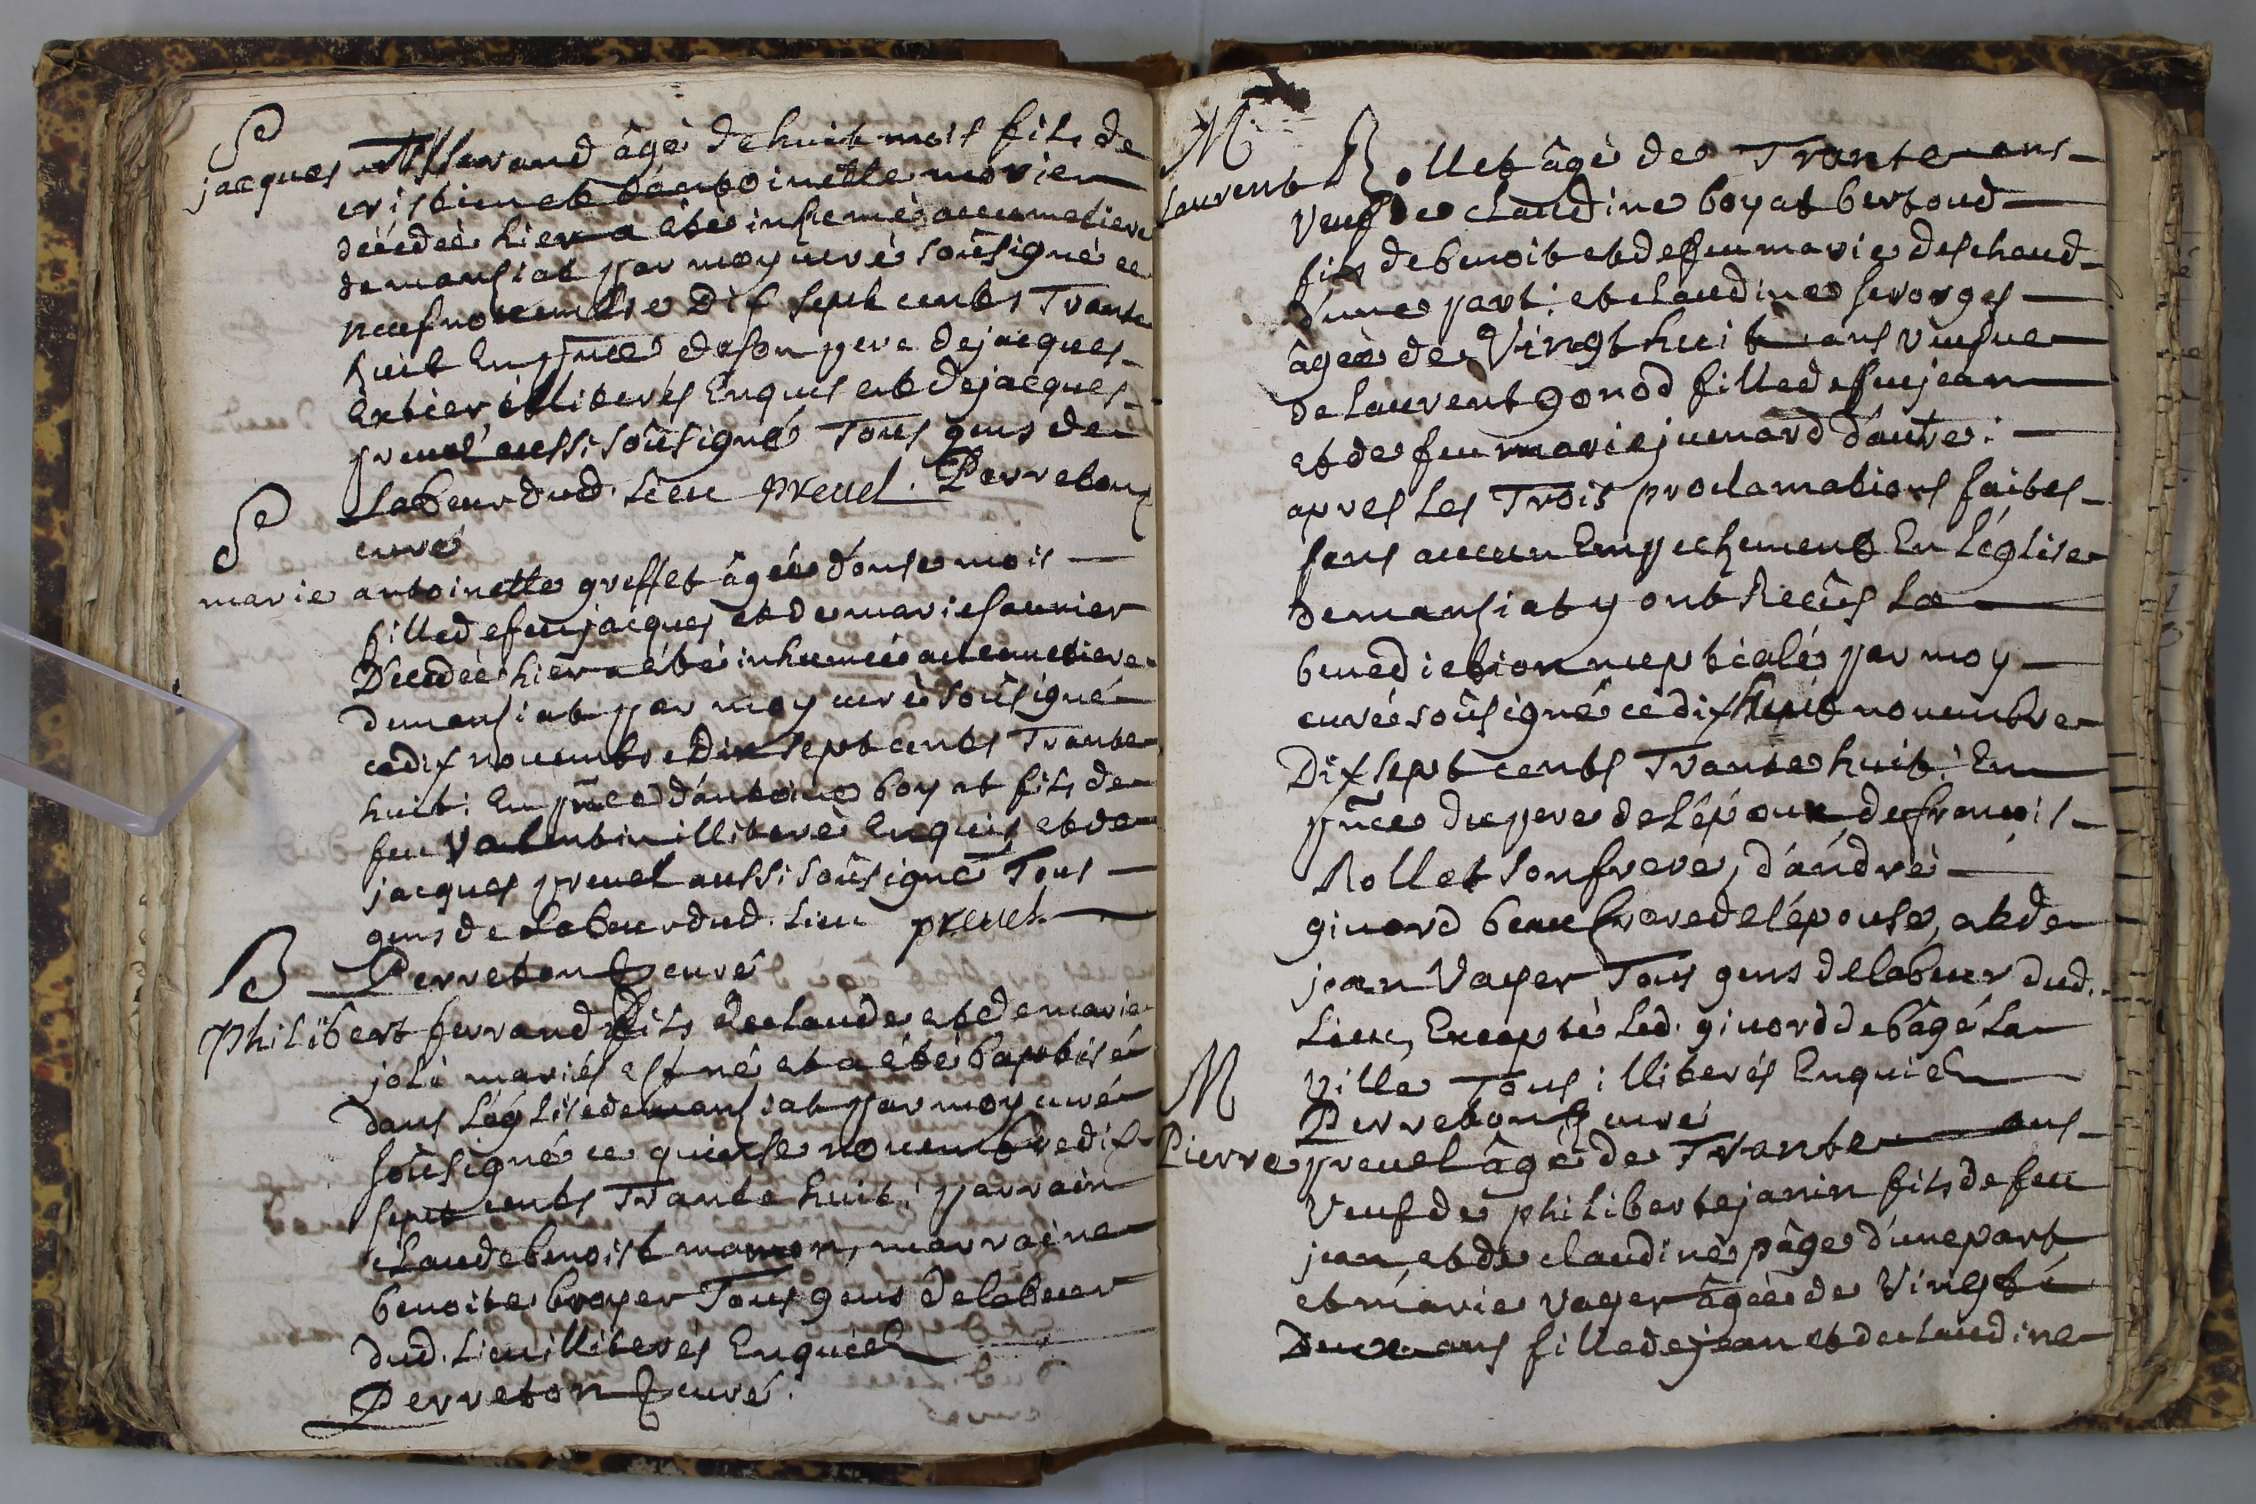 S
jacques Tisserand âgé de huit mois fils de
cristin et d'antoinette morier
décédé hier a été inhumé au cimetiere
de mansiat par moy curé soûsigné ce
neuf novembre dix sept cents Trante
huit En pñce de son pere de jacques
illiterés Enquis et de jacques
preuel aussi soûsigné Tous gens de
labeur dud. lieu preuel. Perreton
curé
S
marie antoinette greffet âgée d'onse mois
fille de feu jacques et de marie saunier
Décédée hier a été inhumée au cimetiere
de mansiat par moy curé soûsigné
ce dix novembre Dix sept cents Trante
huit: En pñce d'antoine boyat fils de
feu Valentin illiteré Enquis, et de
jacques preuel aussi soûsigné Tous
gens de Labeur dud. Lieu preuel.
Perreton curé
B
Philibert ferrand fils de claude et de marie
joli mariés est né et a été baptisé
dans L'églisé de mansiat par moy curé
soûsigné ce quinse novembre dix
sept cents Trante huit: parrain
claude benoist mamon, marraine
benoite broyer Tous gens de labeur
dud. Lieu illiterés Enquis
Perreton curé.
M
Laurent Rollet âgé de Trante ans
Veuf de claudine boyat bertoud
fils de benoit et de feu marie deschaud
d'une part: et claudine feroges
âgée de Vingt huit ans veufue
de laurent gonod fille de feu jean
et de feu marie juenard d'autre:
apres les Trois proclamations faites
sans aucun Empechement En L'église
de mansiat y ont Reçûs La
benediction nuptiale par moy
curé soûsigné ce dix huit novembre
Dix sept cents Trante huit: En
pñce du pere de L'époux de françois
Rollet son frere, d'andré
giuord beau frere de l'épouse, et de
jean Vayer Tous gens de labeur dud.
Lieu, Excepté Led. giuord de bâgé La
Ville Tous illiterés Enquis
Perreton curé
M
Pierre preuel âgé de Trante ans
Veuf de philiberte janin fils de feu
jean et de claudine pâge d'une part
et marie vayer âgée de Vingt é
Deux ans fille de jean et de claudine